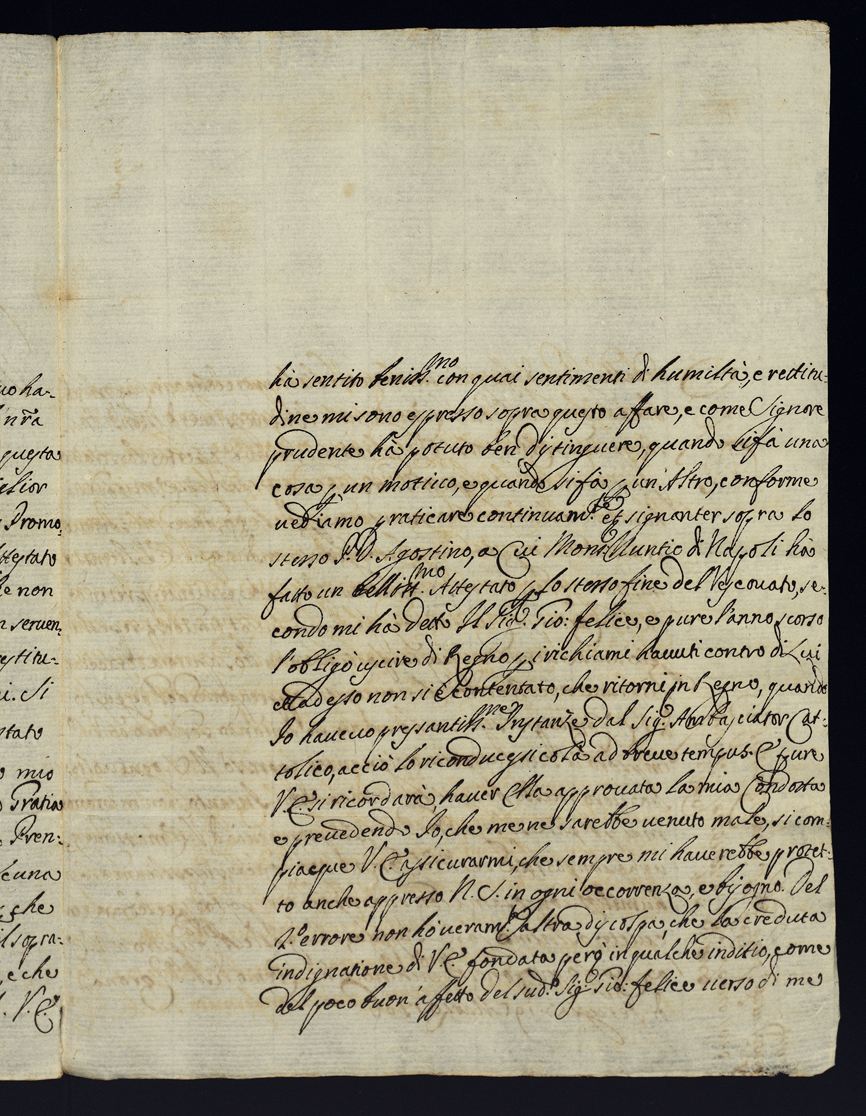 uo ha-
n̅ra
questa
elior
Promo,
Attestato
le non
n seruen,
estitu-
ni. Si
stato
o mio
Gratia
Pren:
se una
che
il sopra:
, e che
V. E.
hà sentito beniss.mo con quai sentimenti di humiltà, e rettitu:
dine mi sono espresso sopra questo affare, e come Signore
prudente hà potuto ben distinguere, quando si fà una
cosa p un motiuo, e quando si fà p un'Altro, conforme
uediamo praticare continuam.te et signanter sopra lo
stesso P. D. Agostino, a Cui Mons.r Nuntio di Napoli hà
fatto un belliss.mo Attestato p lo stesso fine del Vescouato, se-
condo mi hà detto Il Sig.r Gio: felice, e pure l'anno scorso
l'obligò uscire di Regno p i richiami hauuti contro di Lui
e Adesso non si è contentato, che ritorni in Regno, quando
Io haueuo pressantiss.me Instanze dal Sig.r Ambasciator Cat-
tolico, acciò lo riconducessi colà ad breue tempus. E pure
V. E. si ricordarà, hauer Ella approuata la mia Condotta
e preuedendo Io, che me ne sarebbe uenuto male, si com-
piacque V. E. assicurarmi, che sempre mi hauerebbe protet-
to anche appresso N. S. in ogni occorrenza, e bisogno. Del
2.o errore non hò ueram.te Altra discolpa, che la creduta
indignatione di V. E. fondata però in qualche inditio, come
del poco buon'affetto del sud.o Sig.r Gio: felice uerso di me